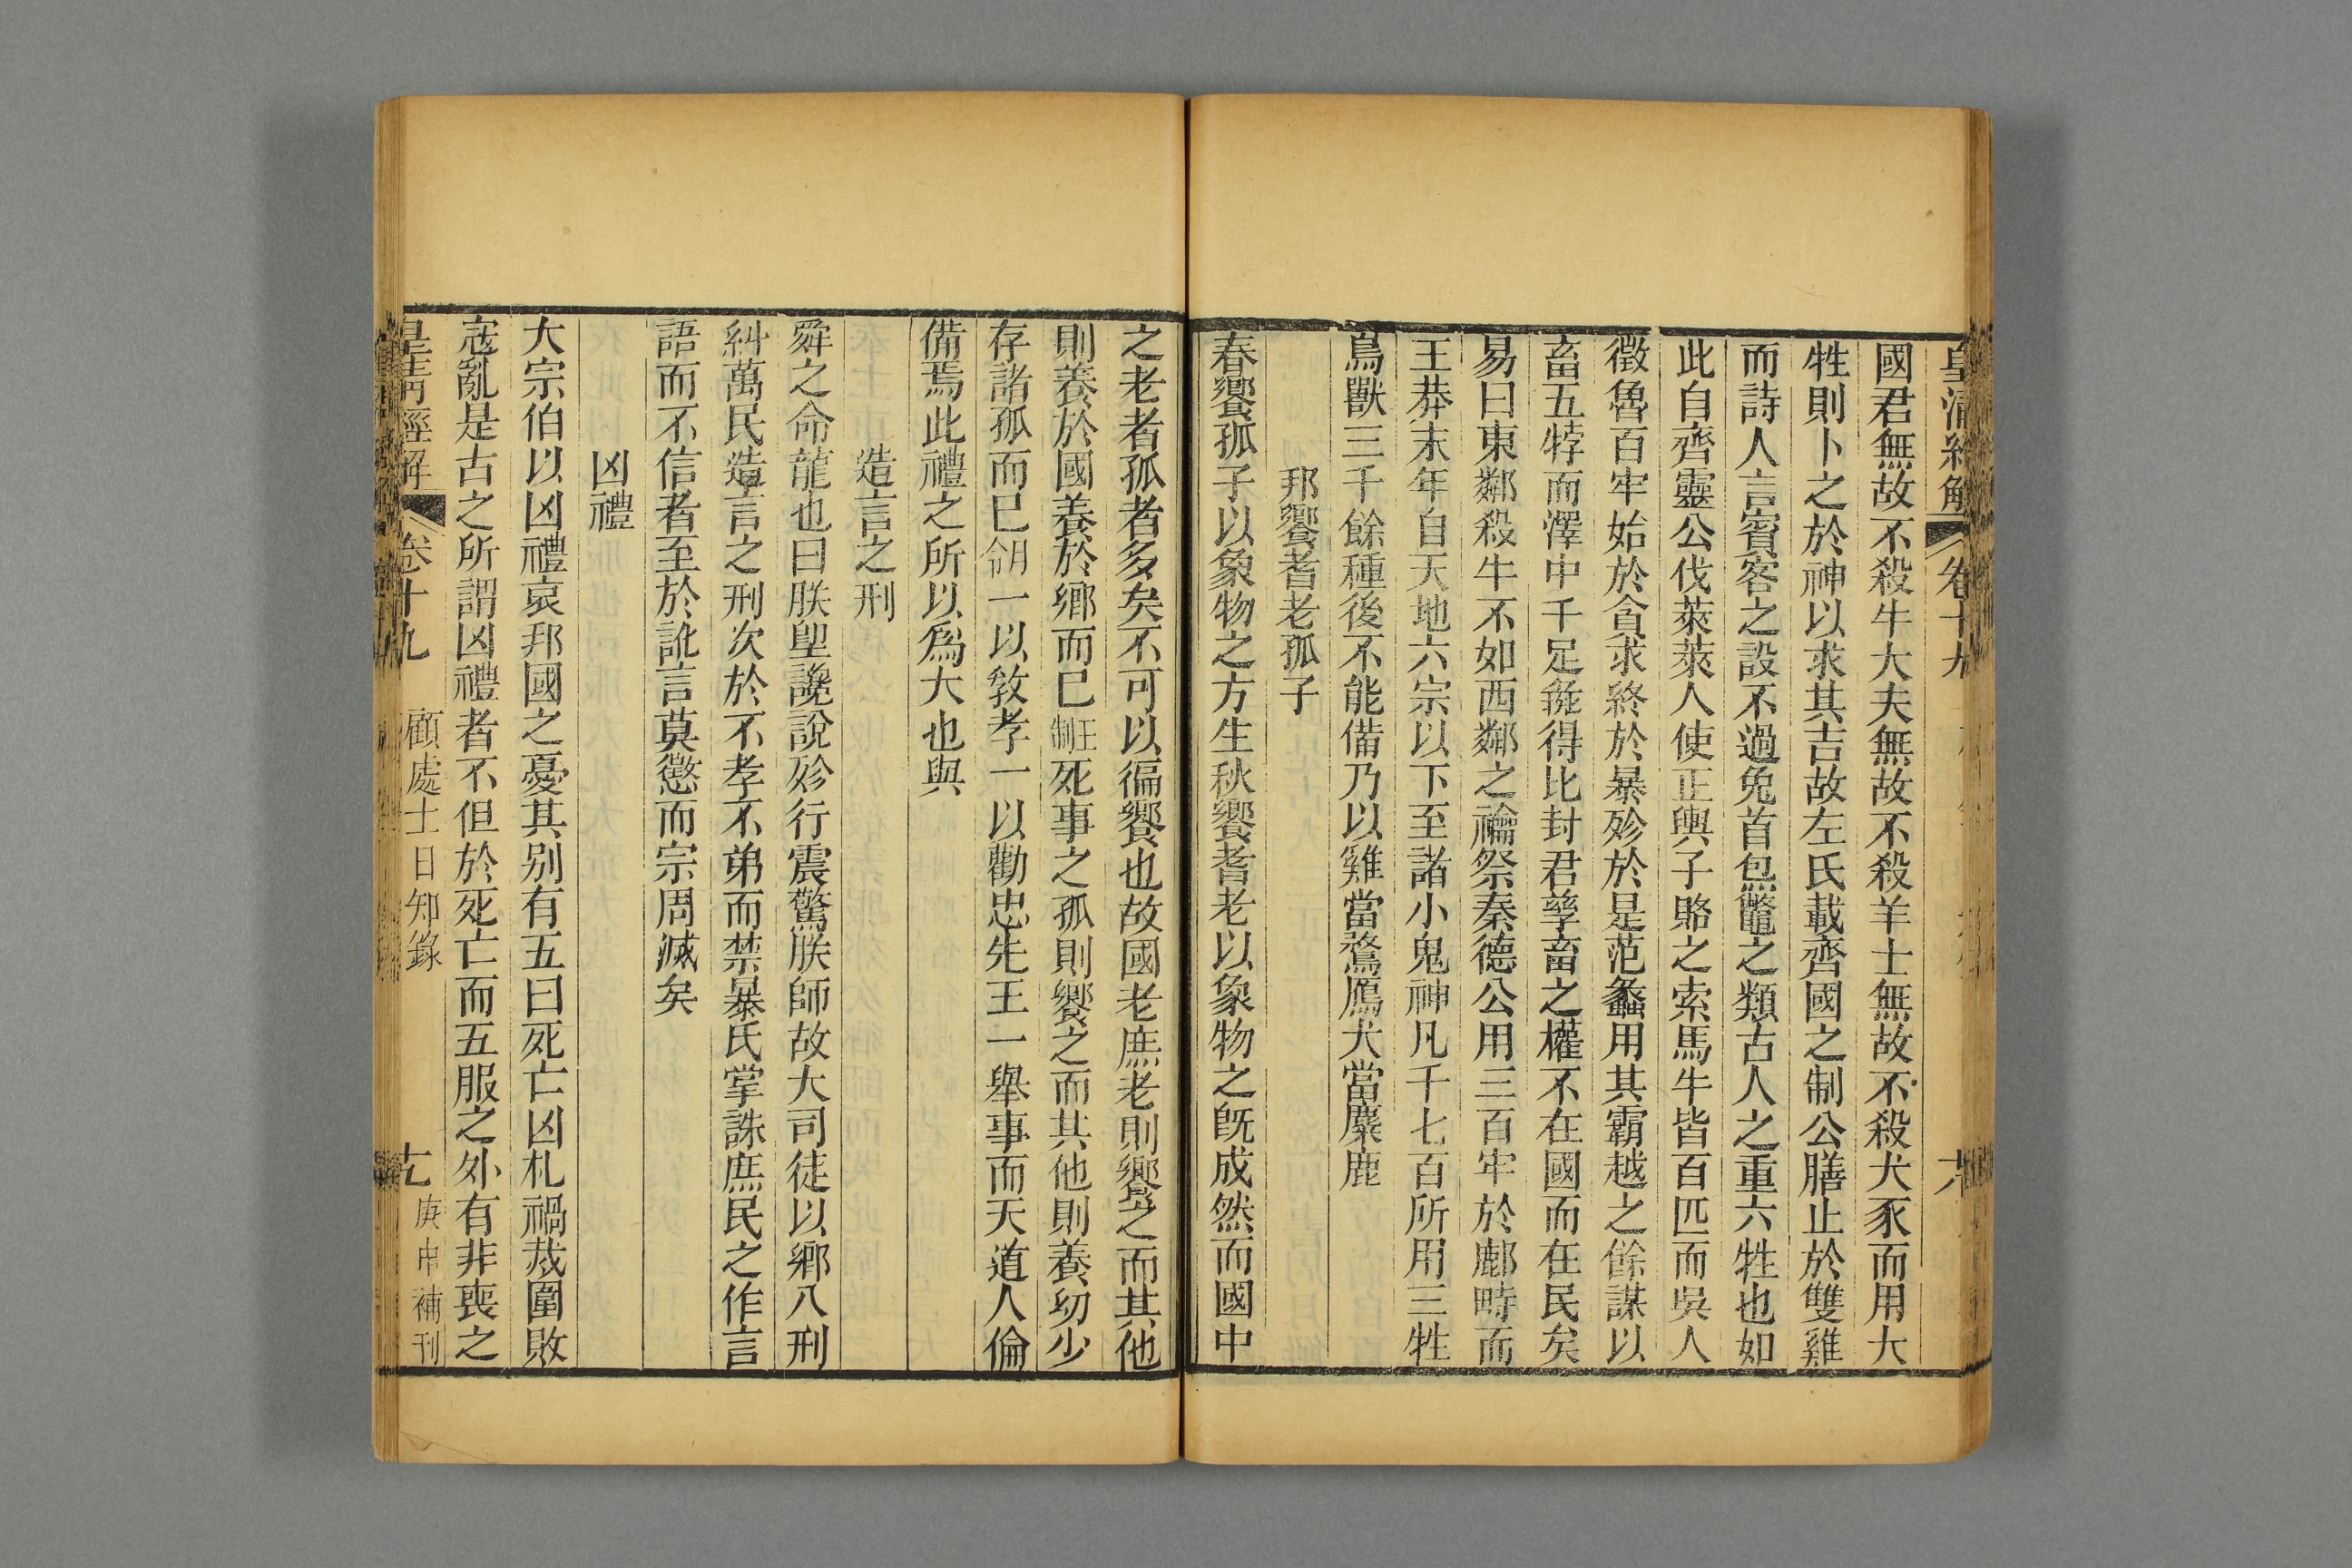 皇清經解 卷十九
國君無故不殺牛大夫無故不殺羊士無故不殺犬豕而用大
牲則卜之於神以求其吉故左氏載齊國之制公膳止於雙雞
而詩人言賓客之設不過兔首炰鼈之類古人之重六牲也如
此自齊靈公伐萊萊人使正輿子賂之索馬牛皆百匹而吳人
徵魯百牢始於貪求終於暴殄於是范蠡用其霸越之餘謀以
畜五牸而澤中千足彘得比封君孳畜之權不在國而在民矣
易曰東鄰殺牛不如西鄰之禴祭秦德公用三百牢於鄜畤而
王莽末年自天地六宗以下至諸小鬼神凡千七百所用三牲
鳥獸三千餘種後不能備乃以雞當鶩鴈犬當麋鹿
邦饗耆老孤子
春饗孤子以象物之方生秋饗耆老以象物之旣成然而國中
之老者孤者多矣不可以徧饗也故國老庶老則饗之而其他
則養於國養於鄉而已王制死事之孤則饗之而其他則養幼少
存諸孤而已月令一以敎孝一以勸忠先王一舉事而天道人倫
備焉此禮之所以爲大也與
造言之刑
舜之命龍也曰朕堲讒說殄行震驚朕師故大司徒以鄉八刑
糾萬民造言之刑次於不孝不弟而禁暴氏掌誅庶民之作言
語而不信者至於訛言莫懲而宗周滅矣
凶禮
大宗伯以凶禮哀邦國之憂其别有五曰死亡凶札禍烖圍敗
寇亂是古之所謂凶禮者不但於死亡而五服之外有非喪之
皇清經解 卷十九 顧處士日知錄 七 庚申補刊